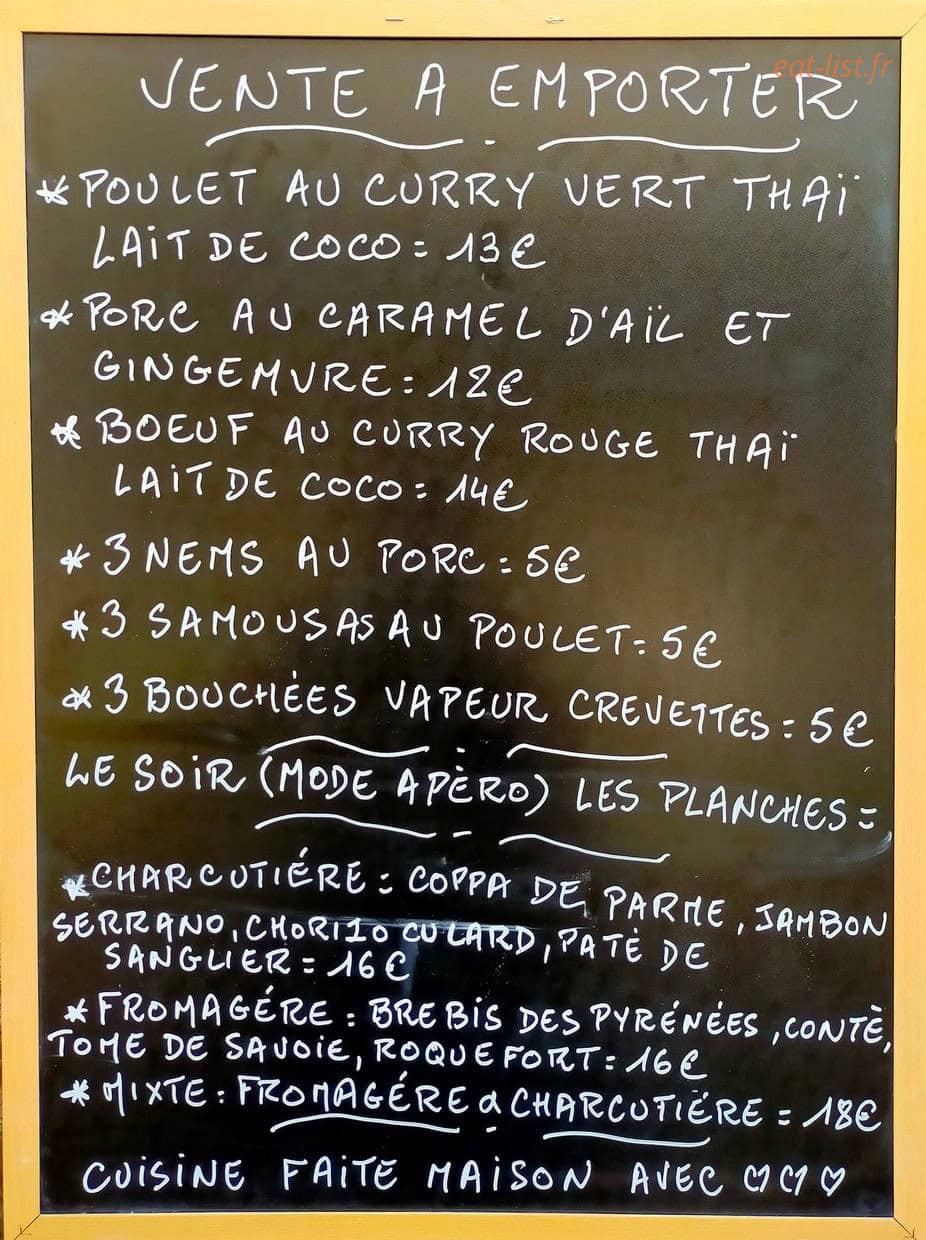 eat-list.fr
VENTE A EMPORTER
* POULET AU CURRY VERT THAÏ
LAiT DE COCO = 13€
* PORC AU CARAMEL D'AÏL ET
GINGEMVRE = 12€
* BOEUF AU CURRY ROUGE THAÏ
LAiT DE COCO = 14€
* 3 NEMS AU PORC = 5€
* 3 SAMOUSAS AU POULET = 5€
* 3 BOUCHÉES VAPEUR CREVETTES = 5€
LE SOiR (MODE APÈRO) LES PLANCHES =
* CHARCUTIÉRE : COPPA DE PARME, JAMBON
SERRANO, CHORIZO CULARD, PATÈ DE
SANGLIER = 16€
* FROMAGÉRE : BREBIS DES PYRÉNÉES, CONTÈ,
TOME DE SAVOiE, ROQUEFORT = 16€
* MIXTE : FROMAGÉRE & CHARCUTIÉRE = 18€
CUiSiNE FAiTE MAiSON AVEC ♡♡♡